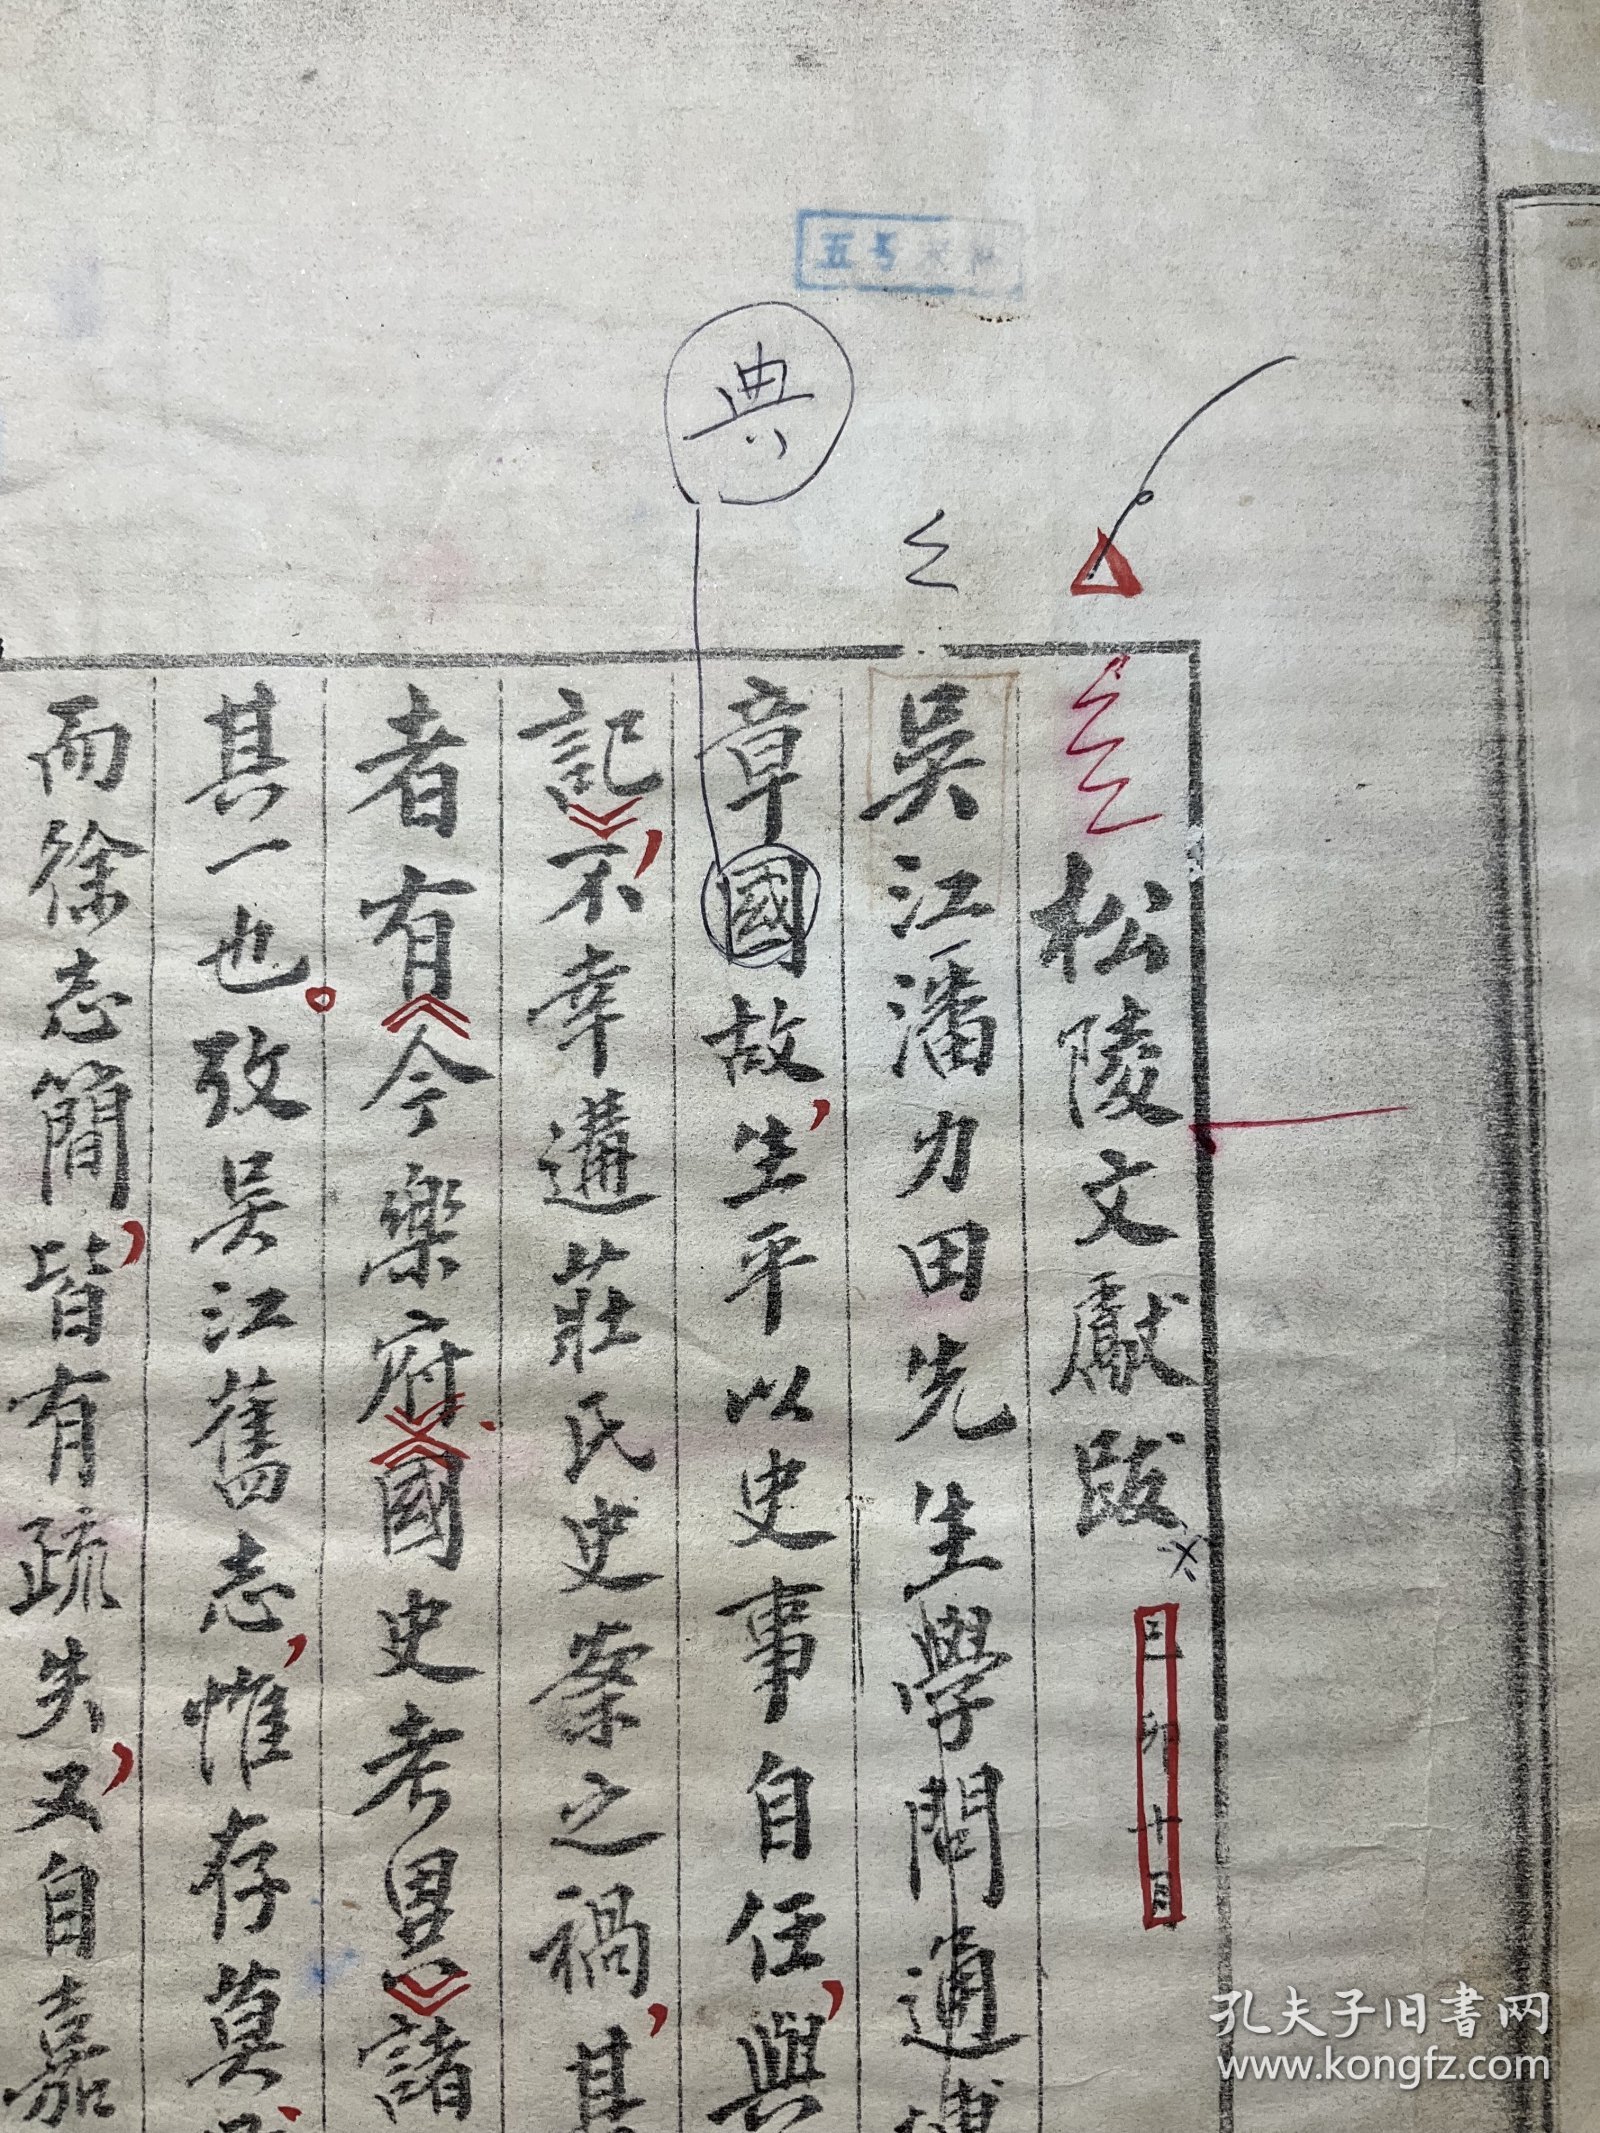 五号
典
松陵文獻跋
己卯十月
吳江潘力田先生學問通博
章國故，生平以史事自任，與
記》，不幸遘莊氏史案之禍，其
者有《今樂府》《國史考異》諸
其一也。攷吳江舊志，惟存莫
而徐志簡，皆有疏失，又自嘉
孔夫子旧书网
www.kongfz.com